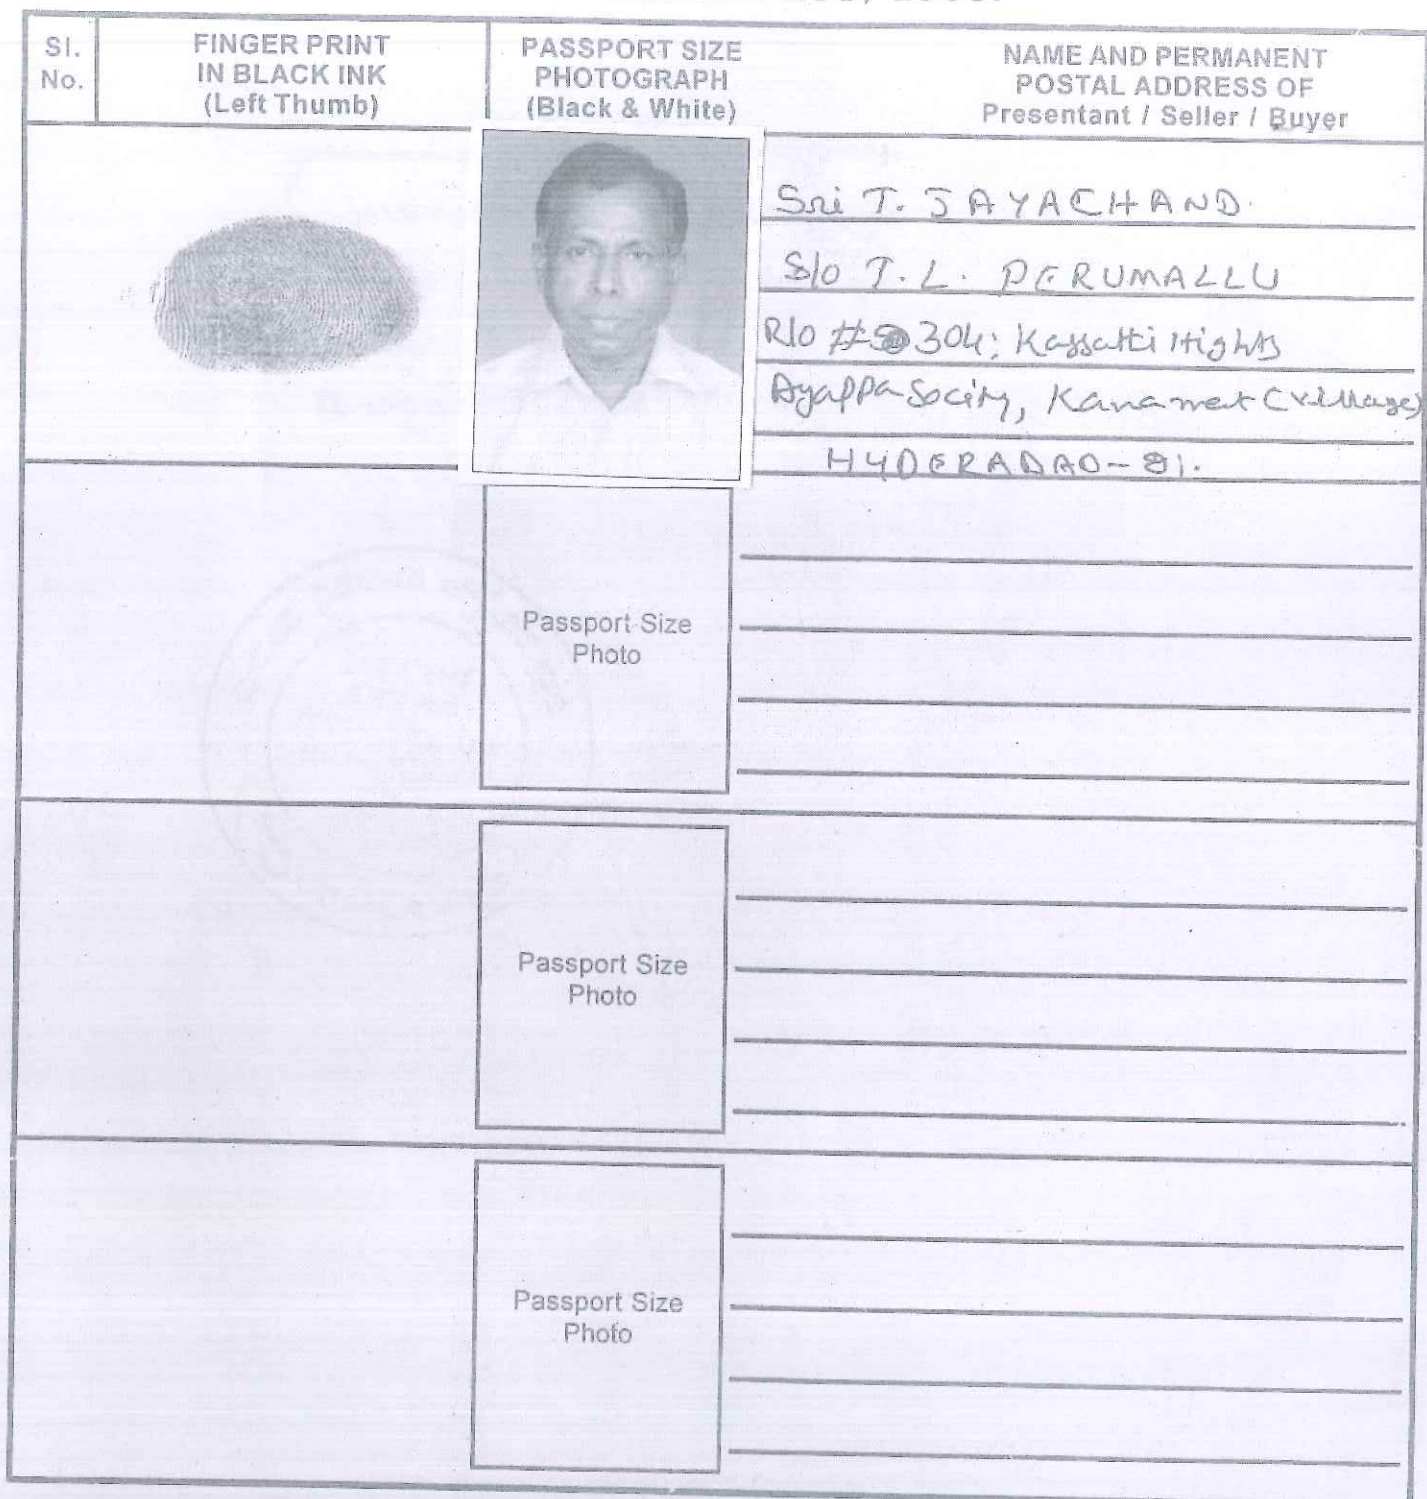 Sl.
No.
FINGER PRINT
IN BLACK INK
(Left Thumb)
PASSPORT SIZE
PHOTOGRAPH
(Black & White)
NAME AND PERMANENT
POSTAL ADDRESS OF
Presentant / Seller / Buyer
Sri T. JAYACHAND.
S/o T. L. PERUMALLU
R/o # 304; Kassatti Hights
Ayappa Socity, Kanamet (Village)
HYDERABAD - 81.
Passport Size
Photo
Passport Size
Photo
Passport Size
Photo